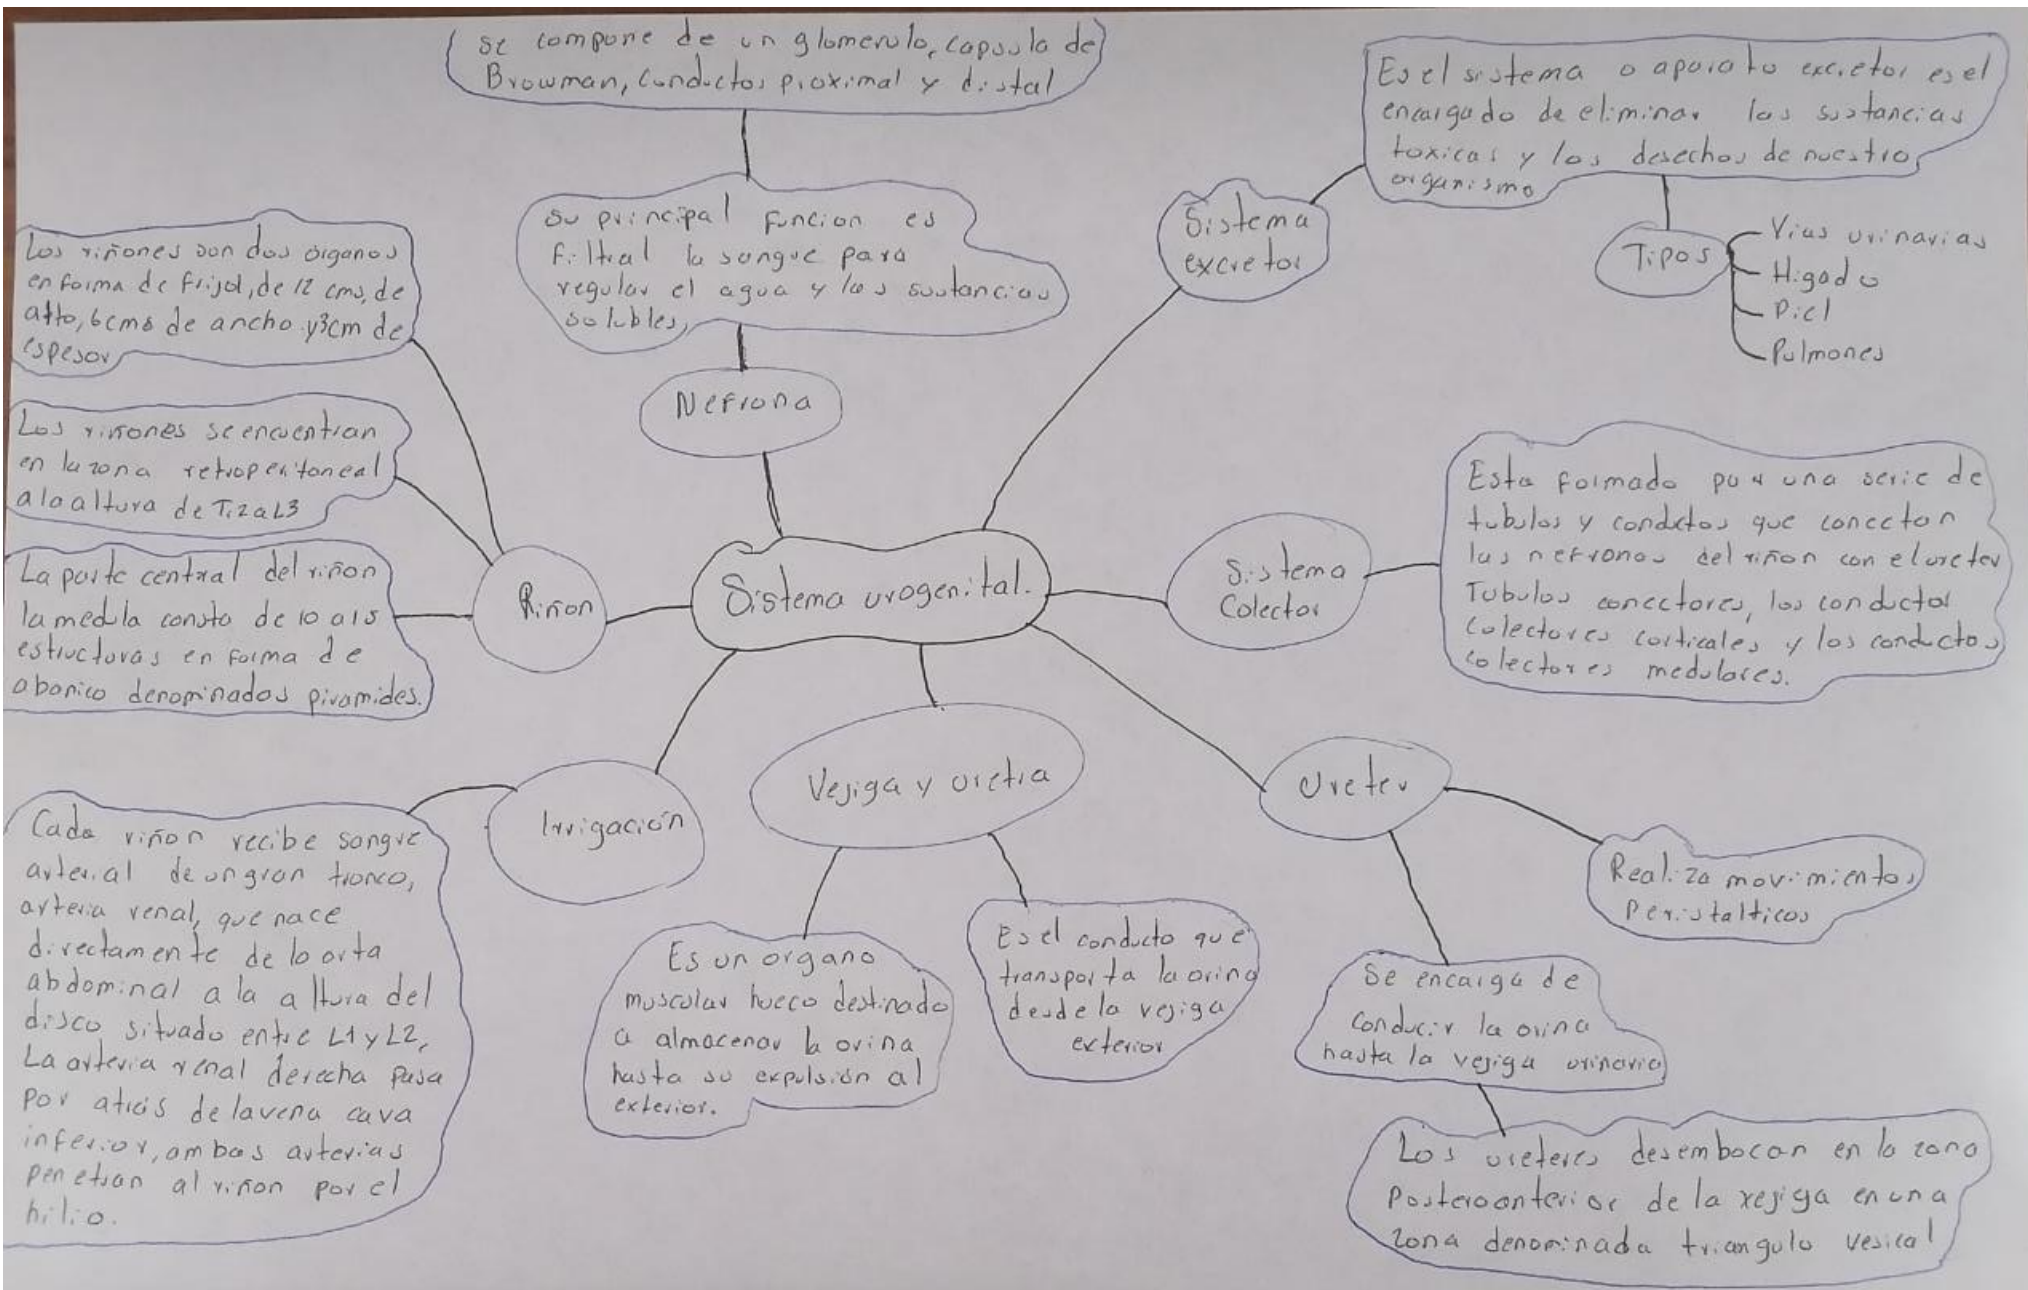 se compone de un glomerulo, capsula de
Browman, Conductos proximal y distal
Su principal funcion es
filtral la sangre para
regular el agua y las sustancias
solubles,
Nefrona
Es el sistema o aparato excretor es el
encargado de eliminar las sustancias
toxicas y los desechos de nuestro
organismo
Sistema
excretor
Tipos
Vias urinarias
Higado
Piel
Pulmones
Los riñones son dos organos
en forma de frijol, de 12 cms, de
alto, 6cms de ancho y 3cm de
espesor
Los riñones se encuentran
en la zona retroperitoneal
a la altura de T12 a L3
La parte central del riñon
la medula consta de 10 a 15
estructuras en forma de
abanico denominados piramides.
Riñon
Sistema urogenital.
Sistema
Colector
Esta formado por una serie de
tubulos y conductos que conectan
las nefronas del riñon con el ureter
Tubulos conectores, los conductos
colectores corticales y los conductos
colectores medulares.
Irrigación
Cada riñon recibe sangre
arterial de un gran tronco,
arteria renal, que nace
directamente de la orta
abdominal a la altura del
disco situado entre L1 y L2,
La arteria renal derecha pasa
por atras de la vena cava
inferior, ambas arterias
penetran al riñon por el
hilio.
Vejiga y uretra
Es un organo
muscular hueco destinado
a almacenar la orina
hasta su expulsión al
exterior.
Es el conducto que
transporta la orina
desde la vejiga
exterior
Ureter
Realiza movimientos
Peristalticos
Se encarga de
conducir la orina
hasta la vejiga urinaria
Los ureteres desembocan en la zona
Posteroanterior de la vejiga en una
zona denominada triangulo vesical